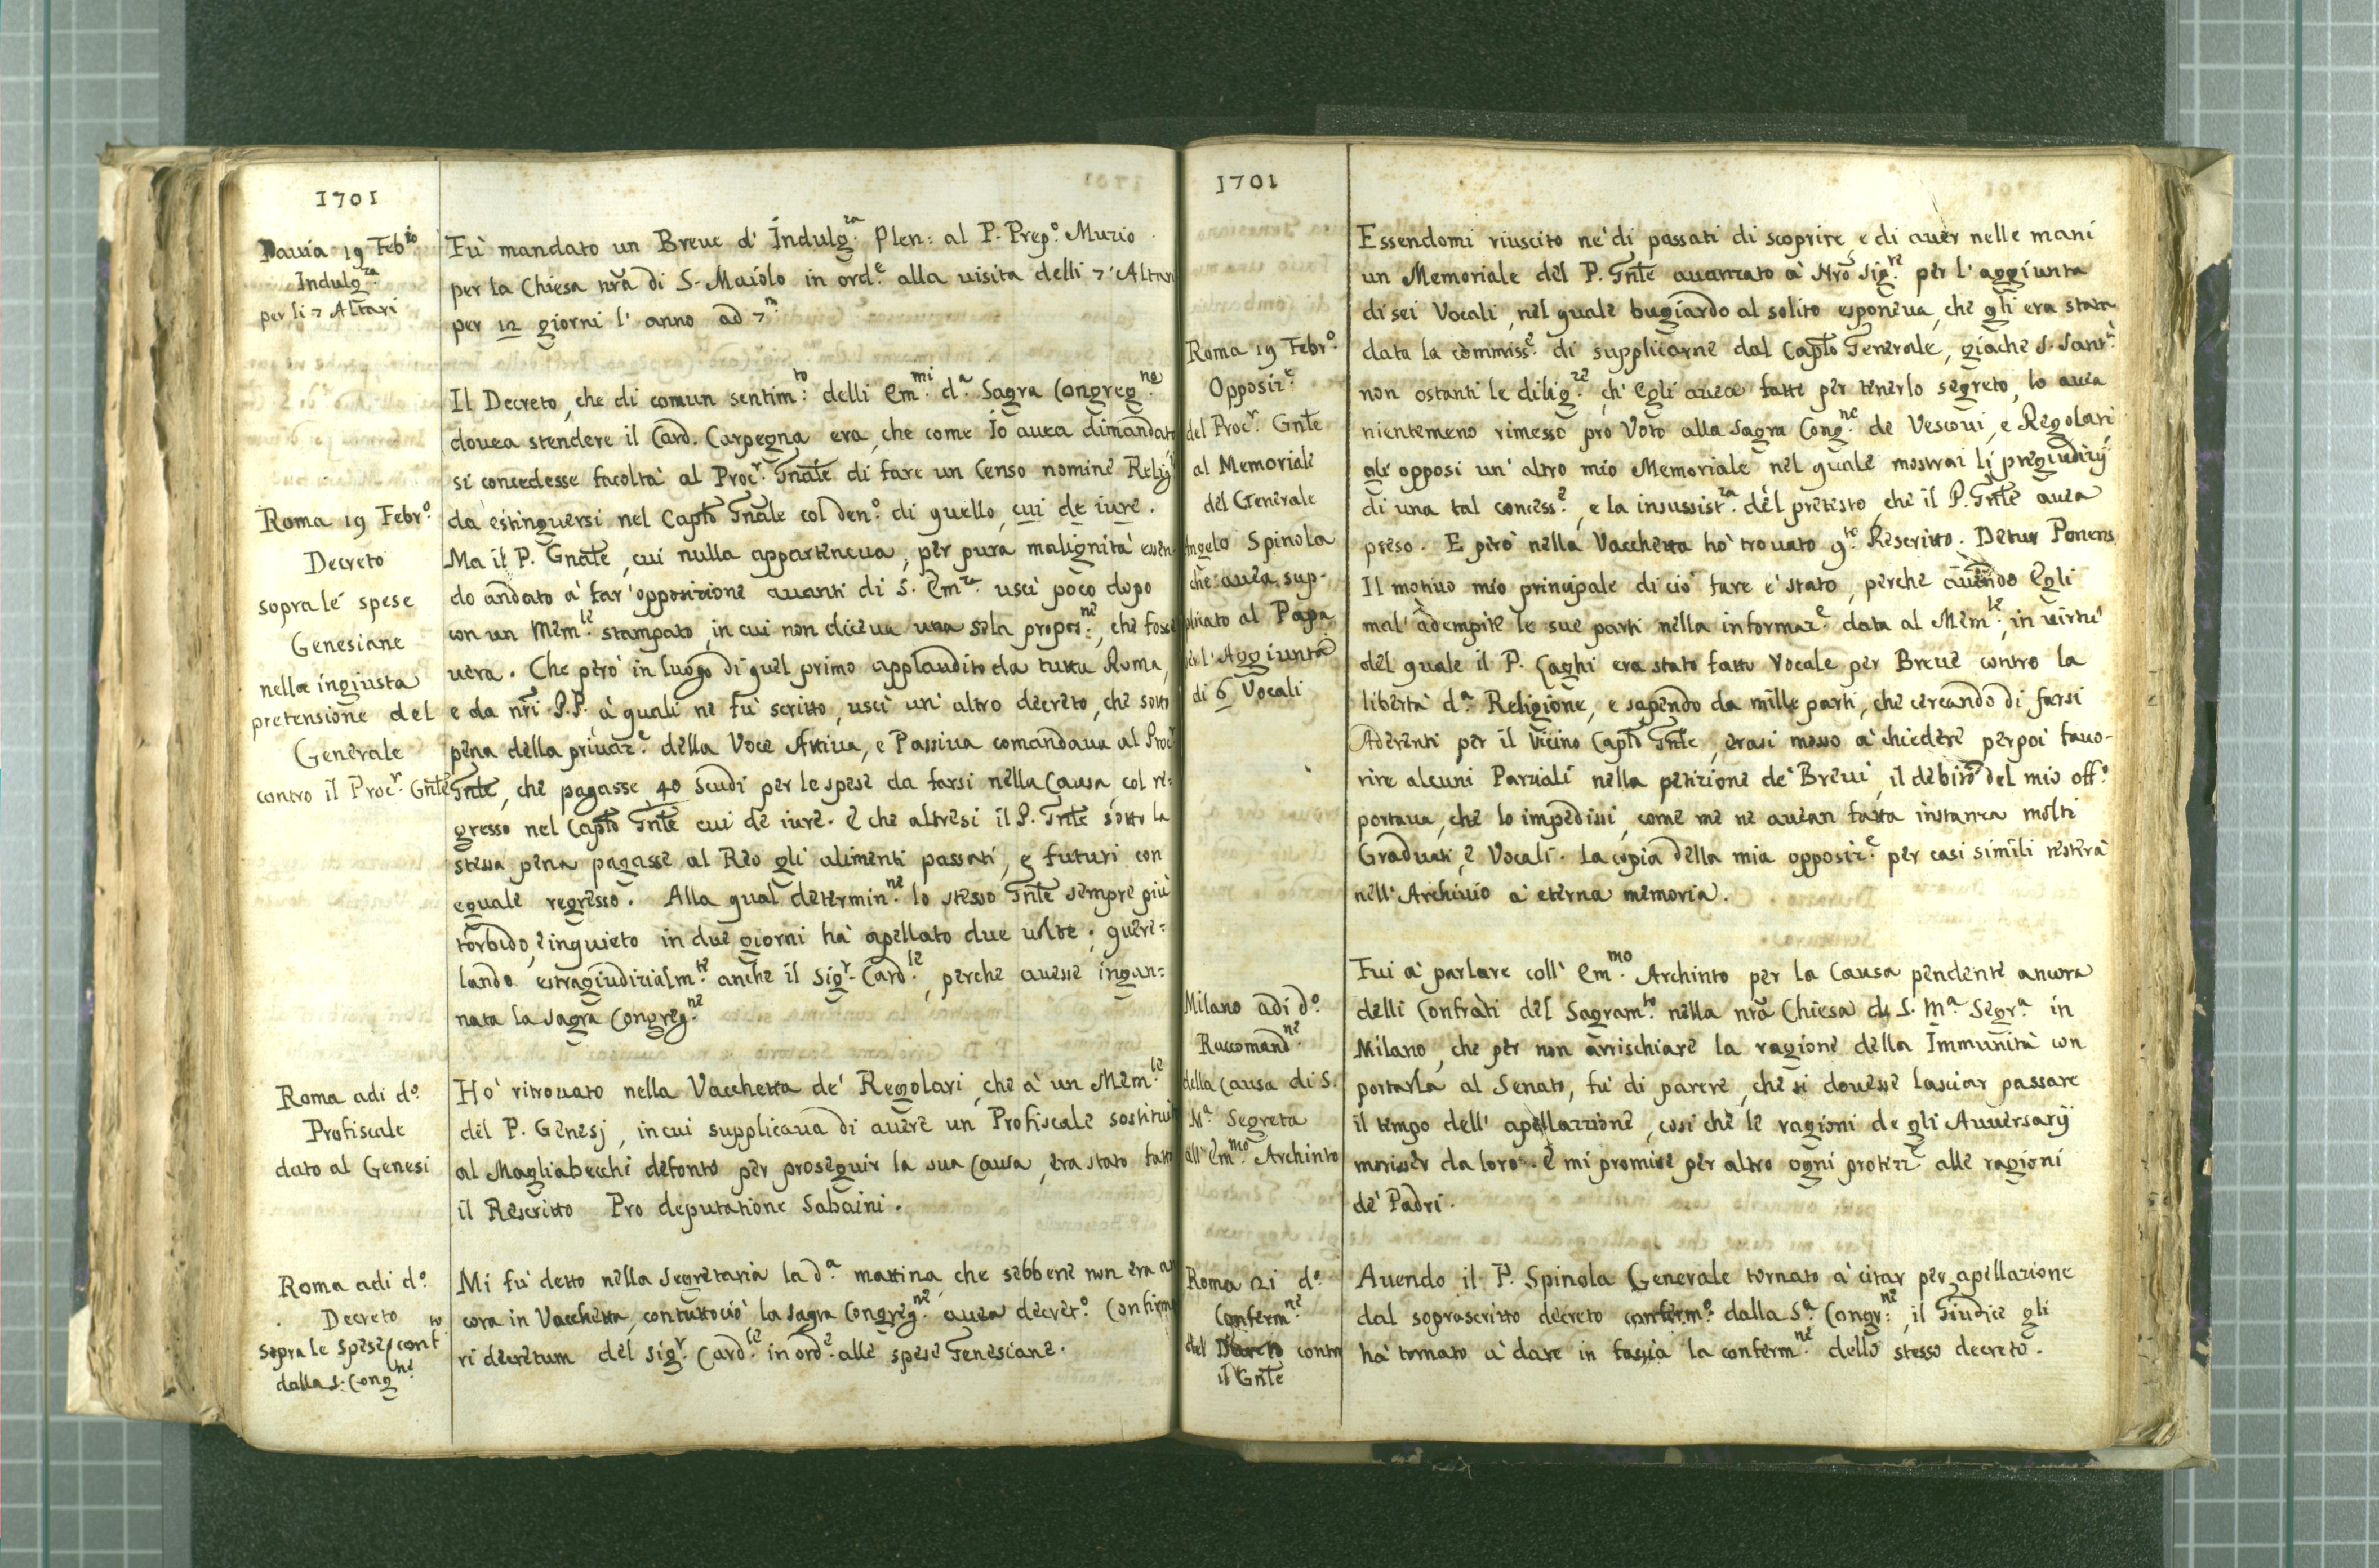 1701
Pauia 19 Feb.ro
Indulg.za
per li 7 Altari
Fù mandato un Breue d' Indulg.za Plen: al P. Prep.o Muzio
per la Chiesa nr̃a di S. Maiolo in ord.e alla uisita delli 7 Altari
per 12 giorni l' anno ad 7.m
Roma 19 Febr.o
Decreto
sopra le spese
Genesiane
nella ingiusta
pretensione del
Generale
contro il Proc.r Gnłe
Il Decreto, che di comun sentim.to delli Em.mi d.a Sagra Congreg.ne
douea stendere il Card. Carpegna era, che come Io auea dimandato
si concedesse facoltà al Proc.r Gnãle di fare un Censo nomine Relig
da estinguersi nel Capłõ Gnãle col den.o di quello, cui de iure.
Ma il P. Gnãle, cui nulla apparteneua, per pura malignità essen-
do andato à far' opposizione auanti di S. Em.za uscì poco dopo
con un Mem.le stampato, in cui non diceua una sola propos.ne, che fosse
uera. Che però in luogo di quel primo applaudito da tutta Roma,
e da nr̃i P.P. à quali ne fù scritto, uscì un' altro decreto, che sotto
pena della priuaz.e della Voce Attiua, e Passiua comandaua al Proc.r
Gnłe, che pagasse 40 scudi per le spese da farsi nella Causa, col re=
gresso nel Capłõ Gnłe cui de iure. E che altresi il P. Gnłe sotto la
stessa pena pagasse al Reo gli alimenti passati, e futuri con
eguale regresso. Alla qual determin.ne lo stesso Gnłe sempre più
torbido, e inquieto in due giorni hà apellato due uolte; quere=
lando estragiudizialm.te anche il Sig.r Card.le, perche auesse ingan=
nata la Sagra Congreg.ne
Roma adi d.o
Profiscale
dato al Genesi
Hò ritrouato nella Vacchetta de' Regolari, che à un Mem.le
del P. Genesj, in cui supplicaua di auere un Profiscale sostituito
al Magliabecchi defonto per proseguir la sua Causa, era stato fatto
il Rescritto Pro deputatione Sabaini.
Roma adi d.o
Decreto
sopra le spese conf.to
dalla S. Cong.ne
Mi fù detto nella Segretaria la d.a mattina, che sebbene non era an
cora in Vacchetta, contuttociò la Sagra Congreg.ne auea decret.o Confirma
ri decretum del Sig.r Card.le in ord.e alle spese Genesiane.
1701
Roma 19 Febr.o
Opposiz.e
del Proc.r Gnłe
al Memoriale
del Generale
Angelo Spinola
che auea sup-
plicato al Papa
per l'Aggiunta
di 6 Vocali
Essendomi riuscito ne' di passati di scoprire, e di auer nelle mani
un Memoriale del P. Gnłe auanzato à Nrõ Sig.re per l'aggiunta
di sei Vocali, nel quale bugiardo al solito esponeua, che gli era stata
data la commiss.e di supplicarne dal Capłõ Generale, giache S. Sant.à
non ostanti le dilig.ze ch' Egli auea fatte per tenerlo segreto, lo auea
nientemeno rimesso pro Voto alla Sagra Cong.ne de Vescoui, e Regolari
gli opposi un' altro mio Memoriale nel quale mostrai li pregiudizij
di una tal concess.e, e la insussist.za del pretesto, che il P. Gnłe auea
preso. E però nella Vacchetta hò trouato q.to Rescritto. Detur Ponens
Il motiuo mio principale di ciò fare è stato, perche auendo Egli
mal' adempite le sue parti nella informaz.e data al Mem.le, in uirtù
del quale il P. Caghi era stato fatto Vocale per Breue contro la
libertà d.a Religione, e sapendo da mille parti, che cercando di farsi
Aderenti per il uicino Capłõ Gnłe, erasi messo à chiedere per poi fauo-
rire alcuni Parziali nella petizione de' Breui, il debito del mio off.o
portaua, che lo impedissi, come me ne auean fatta instanza molti
Graduati, e Vocali. La copia della mia opposiz.e per casi simili resterà
nell' Archiuio à eterna memoria.
Milano adi d.o
Raccomand.ne
della Causa di S.
M.a Segreta
all' Em.mo Archinto
Fui à parlare coll' Em.mo Archinto per la Causa pendente ancora
delli Confrati del Sagram.to nella nr̃a Chiesa di S. M.a Segr.a in
Milano, che per non arrischiare la ragione della Immunità con
portarla al Senato, fù di parere, che si douesse lasciar passare
il tempo dell' apellazzione, cosi che le ragioni de gli Auuersarij
morisser da loro. E mi promise per altro ogni protezz.e alle ragioni
de' Padri.
Roma 21 d.o
Conferm.ne
del Decreto contro
il Gnłe
Auendo il P. Spinola Generale tornato à citar per apellazione
dal soprascritto decreto conferm.o dalla S.a Congr.ne, il Giudice gli
hà tornato à dare in faccia la conferm.ne dello stesso decreto.